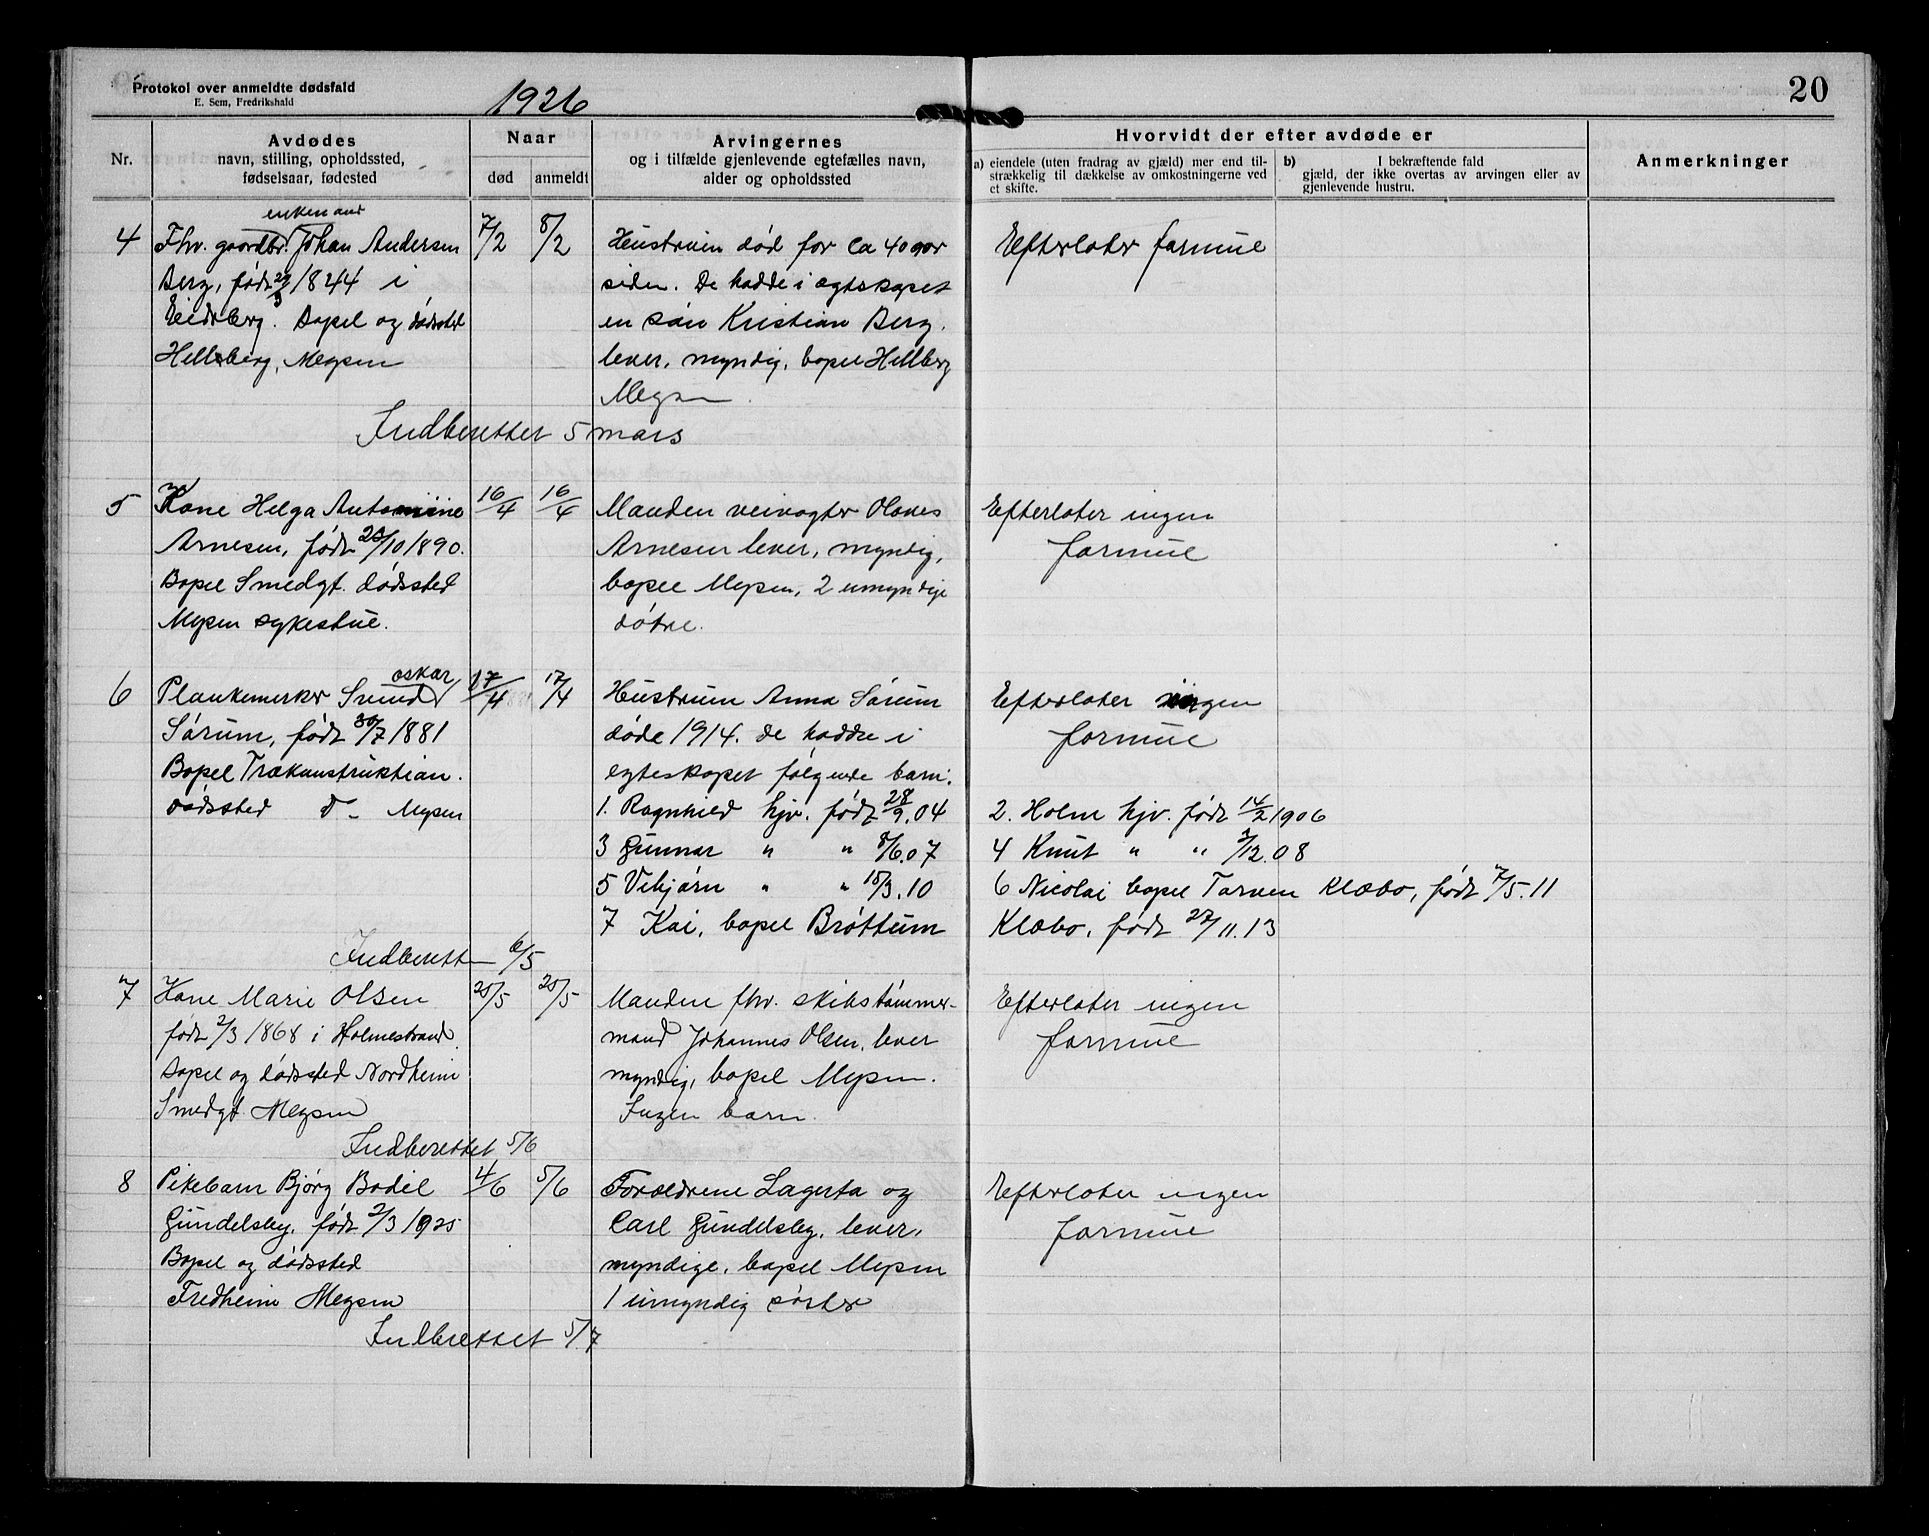 Protokol over anmeldte dødsfald
E. Sem, Fredrikshald
1926
20
Nr.
Avdødes
navn, stilling, opholdssted,
fødselsaar, fødested
Naar
død
anmeldt
Arvingernes
og i tilfælde gjenlevende egtefælles navn,
alder og opholdssted
Hvorvidt der efter avdøde er
a) eiendele (uten fradrag av gjæld) mer end til-
strækkelig til dækkelse av omkostningerne ved
et skifte.
b) I bekræftende fald
gjæld, der ikke overtas av arvingen eller av
gjenlevende hustru.
Anmerkninger
4
enkemand
Fhv. gaardbr. Johan Andersen
Berg, født 29/3 1844 i
Eidsberg. Bopel og dødssted
Hellsberg, Mysen
7/2
8/2
Hustruen død for ca 40 aar
siden. De hadde i egtskapet
en søn Kristian Berg,
lever, myndig, bopel Hellberg
Mysen.
Efterlater formue
Indberettet 5 mars
5
Kone Helga Antonnine
Arnesen, født 20/10 1890.
Bopel Smedgt. dødssted
Mysen sykestue.
16/4
16/4
Manden veivogter Olaves
Arnesen lever, myndig,
bopel Mysen, 2 umyndige
døtre.
Efterlater ingen
formue
6
oskar
Plankemerker Svend
Sørum, født 30/7 1881
Bopel Trækonstruktion.
dødssted do Mysen
17/4
17/4
Hustruen Anna Sørum
døde 1914. De hadde i
egteskapet følgende barn:
1. Ragnhild hjv. født 28/9.04
3 Gunnar " " 8/6.07
5 Vebjørn " " 15/3.10
7 Kai, bopel Brøttum
Efterlater ingen
formue
2. Holm hjv. født 14/2 1906
4 Knut " " 3/12.08
6 Nicolai bopel Tarven Klæbo, født 7/5.11
Klæbo, født 27/11.13
Indberettet 6/5
7
Kone Marie Olsen
født 2/3 1868 i Holmestrand.
Bopel og dødssted Nordheim
Smedgt Mysen
20/5
20/5
Manden fhv. skibstømmer-
mand Johannes Olsen, lever
myndig, bopel Mysen.
Ingen barn.
Efterlater ingen
formue
Indberettet 5/6
8
Pikebarn Bjørg Bodil
Gundelsby, født 2/3 1925
Bopel og dødssted
Fredheim Mysen
4/6
5/6
Forældrene Lagerta og
Carl Gundelsby, lever,
myndige, bopel Mysen
1 umyndig søster
Efterlater ingen
formue
Indberettet 5/7